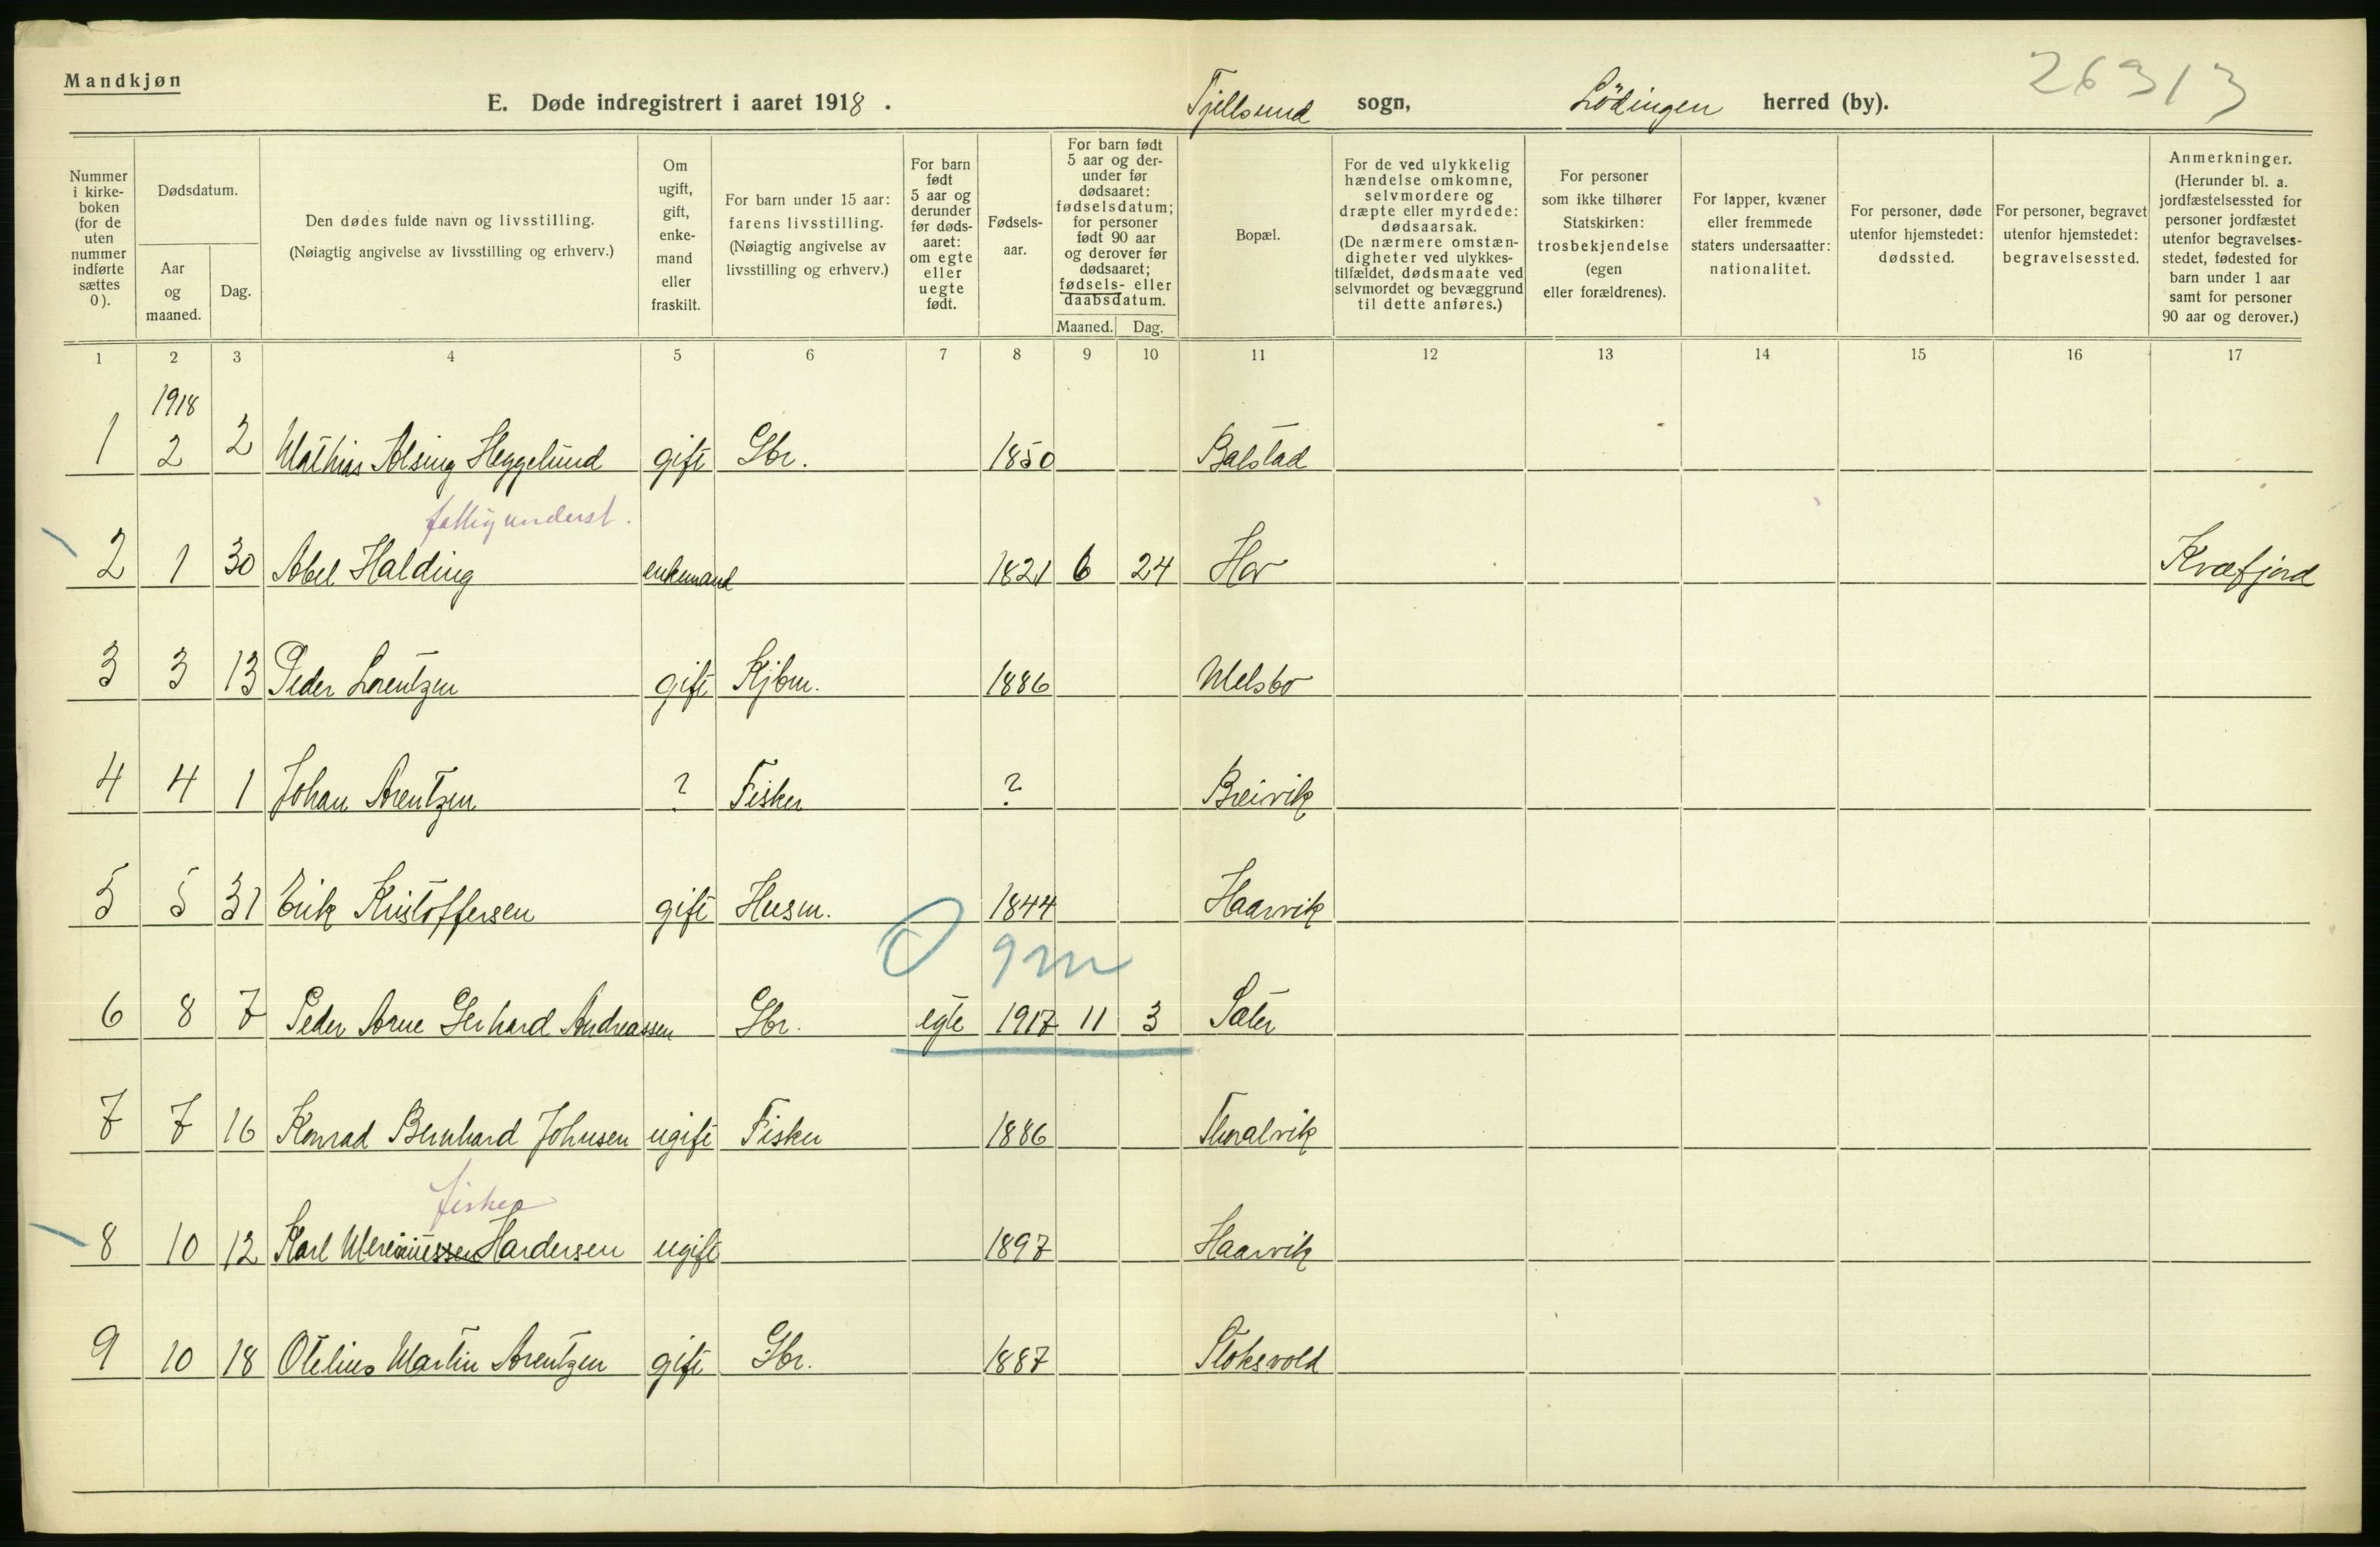 Mandkjøn
E. Døde indregistrert i aaret 1918.
Tjellsund sogn, Lödingen herred (by).
26313
Nummer i kirke-boken (for de uten nummer indførte sættes 0).
Dødsdatum.
Aar og maaned.
Dag.
Den dødes fulde navn og livsstilling.
(Nøiagtig angivelse av livsstilling og erhverv.)
Om ugift, gift, enke-mand eller fraskilt.
For barn under 15 aar: farens livsstilling. (Nøiagtig angivelse av livsstilling og erhverv.)
For barn født 5 aar og derunder før døds-aaret: om egte eller uegte født.
Fødsels-aar.
For barn født 5 aar og der-under før dødsaaret: fødselsdatum; for personer født 90 aar og derover før dødsaaret; fødsels- eller daabsdatum.
Maaned. Dag.
Bopæl.
For de ved ulykkelig hændelse omkomne, selvmordere og dræpte eller myrdede: dødsaarsak. (De nærmere omstæn-digheter ved ulykkes-tilfældet, dødsmaate ved selvmordet og bevæggrund til dette anføres.)
For personer som ikke tilhører Statskirken: trosbekjendelse (egen eller forældrenes).
For lapper, kvæner eller fremmede staters undersaatter: nationalitet.
For personer, døde utenfor hjemstedet: dødssted.
For personer, begravet utenfor hjemstedet: begravelsessted.
Anmerkninger. (Herunder bl. a. jordfæstelsessted for personer jordfæstet utenfor begravelses-stedet, fødested for barn under 1 aar samt for personer 90 aar og derover.)
1 2 3 4 5 6 7 8 9 10 11 12 13 14 15 16 17
1918
1 2 2 Mathias Alsing Heggelund gift Gbr. 1850 Balstad
fattigunderst.
2 1 30 Abel Halding enkemand 1821 6 24 Hov Kvæfjord
3 3 13 Peder Lorentzen gift Kjbm. 1886 Melsbo
4 4 1 Johan Arentzen ? Fisker ? Breivik
5 5 31 Erik Kristoffersen gift Husm. 1844 Haarvik
0 9m
6 8 7 Peder Arne Gerhard Andreassen Gbr. egte 1917 11 3 Sæter
7 7 16 Konrad Bernhard Johnsen ugift Fisker 1886 Thoralvik
fisker
8 10 12 Karl Hardersen ugift 1897 Haarvik
9 10 18 Otelius Martin Arentzen gift Gbr. 1887 Stoksvold